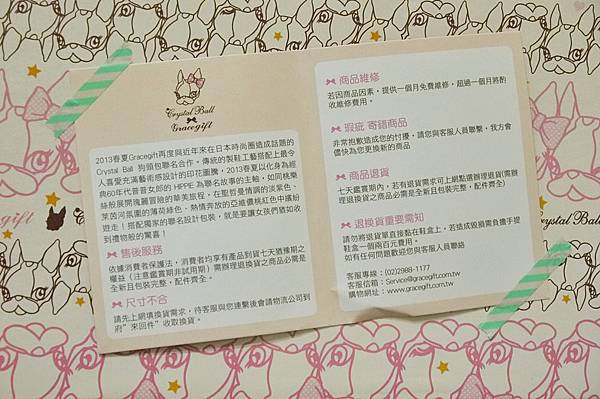 Crystal Ball
×
Gracegift
2013春夏Gracegift再度與近年來在日本時尚圈造成話題的
Crystal Ball 狗頭包聯名合作。傳統的製鞋工藝搭配上最令
人喜愛充滿藝術感設計的印花圖騰，2013春夏以化身為經
典60年代步普普女郎的 HIPPIE 為聯名故事的主軸，如同桃樂
絲般展開瑰麗冒險的華美旅程，在聖哲曼情調的淡紫色、
萊茵河氛圍的薄荷綠色、熱情奔放的亞維儂桃紅色中繽紛
遊走！搭配獨家的聯名設計包裝，就是要讓女孩們猶如收
到禮物般的驚喜！
售後服務
依據消費者保護法，消費者均享有產品到貨七天猶豫期之
權益（注意鑑賞期非試用期）需辦理退換貨之商品必需是
全新且包裝完整，配件齊全。
尺寸不合
請先上網填換貨需求，待客服與您連繫後會請物流公司到
府”來回件”收取換貨。
商品維修
若因商品因素，提供一個月免費維修，超過一個月將酌
收維修費用。
瑕疵 寄錯商品
非常抱歉造成您的打擾，請您與客服人員聯繫，我方會
儘快為您更換新的商品
商品退貨
七天鑑賞期內，若有退貨需求可上網點選辦理退貨(需辦
理退換貨之商品必需是全新且包裝完整，配件齊全)
退換貨重要需知
請勿將退貨單直接黏在鞋盒上，若造成毀損需負擔手提
鞋盒一個兩百元費用。
如有任何問題歡迎您與客服人員聯絡
客服專線：(02)2988-1177
客服信箱：Service@gracegift.com.tw
購物網址：www.gracegift.com.tw
Crystal Ball